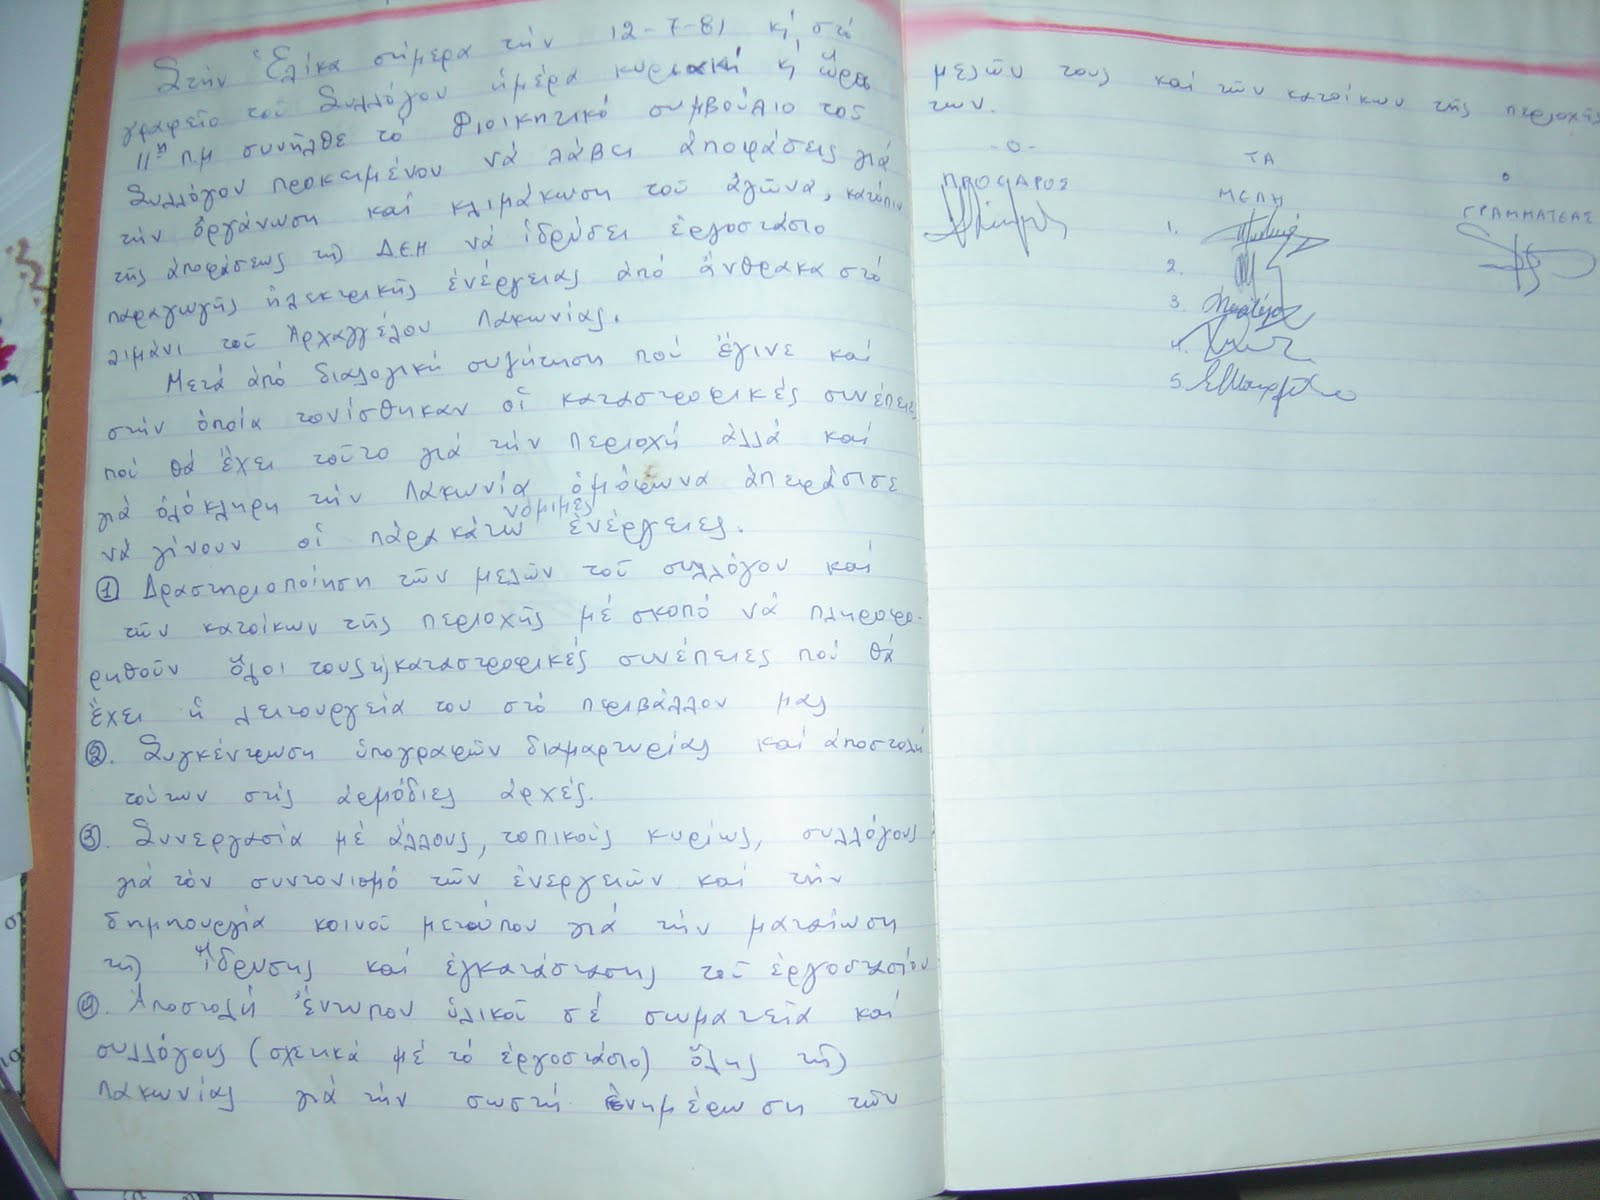 Στήν Ἑλίκα σήμερα τήν 12-7-81 κ' στό
γραφεῖο τοῦ Συλλόγου ἡμέρα κυριακή κ' ὥρα
11η π.μ συνῆλθε τό Διοικητικό συμβούλιο τοῦ
Συλλόγου προκειμένου νά λάβει ἀποφάσεις γιά
τήν ὀργάνωση καί κλιμάκωση τοῦ ἀγῶνα, κατόπιν
τῆς ἀποφάσεως τῆς Δ.Ε.Η νά ἱδρύσει ἐργοστάσιο
παραγωγῆς ἠλεκτρικῆς ἐνέργειας ἀπό ἄνθρακα στό
λιμάνι τοῦ Ἀρχαγγέλου Λακωνίας.
Μετά ἀπό διαλογική συζήτηση πού ἔγινε καί
στήν ὁποία τονίσθηκαν οἱ καταστροφικές συνέπειες
πού θά ἔχει τοῦτο γιά τήν περιοχή ἀλλά καί
γιά ὁλόκληρη τήν Λακωνία ὁμόφωνα ἀπεφάσισε
νά γίνουν οἱ πάρα κάτω νόμιμες ἐνέργειες.
① Δραστηριοποίηση τῶν μελῶν τοῦ συλλόγου καί
τῶν κατοίκων τῆς περιοχῆς μέ σκοπό νά πληροφο-
ρηθοῦν ὅλοι τους καταστροφικές συνέπειες πού θά
ἔχει ἡ λειτουργεία του στό περιβάλλον μας
②. Συγκέντρωση ὑπογραφῶν διαμαρτυρίας καί ἀποστολή
τούτων στίς ἁρμόδιες ἀρχές.
③. Συνεργασία μέ ἄλλους, τοπικούς κυρίως, συλλόγους
γιά τόν συντονισμό τῶν ἐνεργειῶν καί τήν
δημιουργία κοινοῦ μετώπου γιά τήν ματαίωση
τῆς ἵδρυσης καί ἐγκατάστασης τοῦ ἐργοστασίου
④. Ἀποστολή ἔντυπου ὑλικοῦ σέ σωματεῖα καί
συλλόγους (σχετικά μέ τό ἐργοστάσιο) ὅλης τῆς
Λακωνίας γιά τήν σωστή ἐνημέρωση τῶν
μελῶν τους καί τῶν κατοίκων τῆς περιοχῆς
των.
-0-
ΠΡΟΕΔΡΟΣ
ΤΑ
ΜΕΛΗ
Ο
ΓΡΑΜΜΑΤΕΑΣ
1.
2.
3.
4.
5.